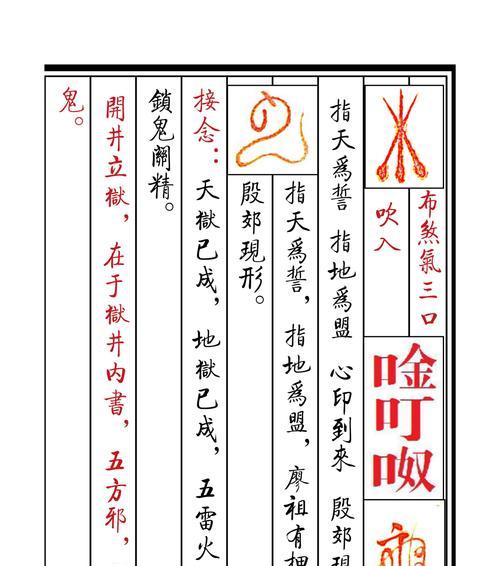 布煞氣三口
吹入
唫叮呶
指天爲誓 指地爲盟 心印到來 殷郊現
指天爲誓,指地爲盟,廖祖有押
殷郊現形。
接念:天獄已成,地獄已成,五雷火
鎖鬼關精。
開井立獄,在于獄井内書,五方邪,
鬼。